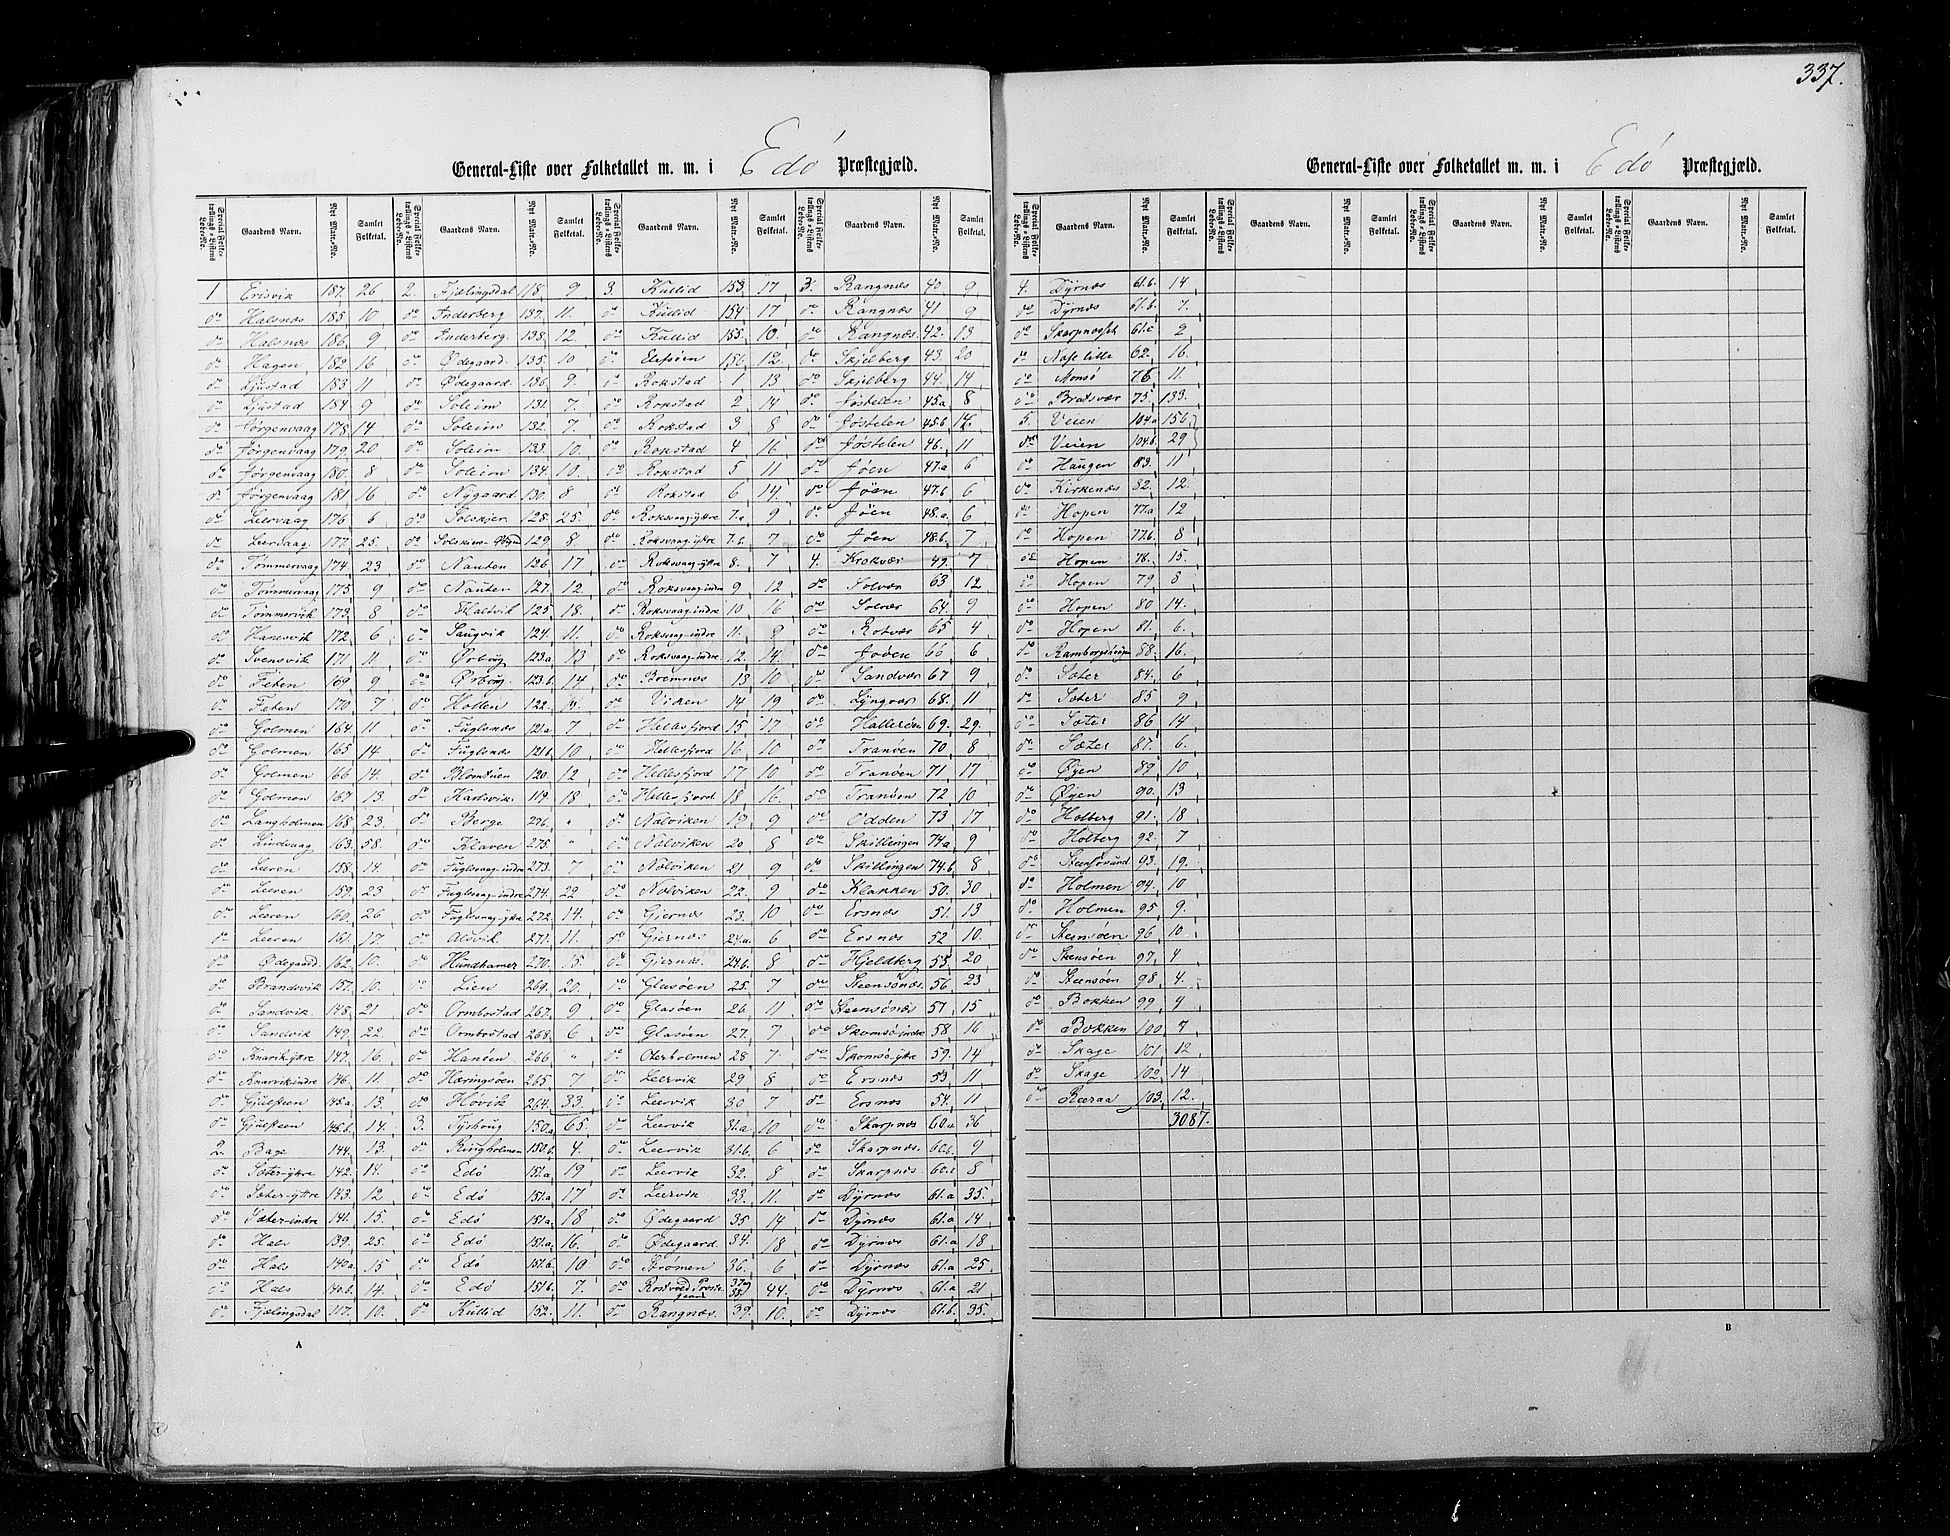 337.
General-Liste over Folketallet m. m. i Edö Præstegjæld.
Special Folketællings-Listens Løbe-No. Gaardens Navn. Nyt Matr.-No. Samlet Folketal. Special Folketællings-Listens Løbe-No. Gaardens Navn. Nyt Matr.-No. Samlet Folketal. Special Folketællings-Listens Løbe-No. Gaardens Navn. Nyt Matr.-No. Samlet Folketal. Special Folketællings-Listens Løbe-No. Gaardens Navn. Nyt Matr.-No. Samlet Folketal.
1 Erisvik 187. 26 2. Fjælingsdal 118. 9 3. Kullid 153. 17 3. Rangnæs 40 9
do Halsnæs 185 10 do Inderberg 137. 11. do Kullid 154 17 do Rangnæs 41 9
do Halsnæs 186 9 do Inderberg 138. 12. do Kullid 155. 10. do Rangnæs 42. 13
do Hagen 182 16 do Ødegaard 135. 10 do 156. 12. do Skjelberg 43. 20
do Ljustad 183 11 do Ødegaard 136. 9. do Rokstad 1 13 do Skjelberg 44. 14
do Ljustad 184 9 do Soleim 131. 7. do Rokstad 2 14 do Jøstelen 45a 8
do Jørgenvaag 178 14 do Soleim 132. 7. do Rokstad 3 8 do Jøstelen 45.b
do Jørgenvaag 179. 20 do Soleim 133. 10. do Rokstad 4 16 do Jøstelen 46. 11
do Jørgenvaag 180. 8 do Soleim 134. 10. do Rokstad 5 11 do Jøen 47.a 6
do Jørgenvaag 181 16 do Nygaard 130. 8 do Rokstad 6 14. do Jøen 47.b 6
do Leervaag 176. 6 do Solskjen 128. 25. do Roksvaag-ÿtre 7.a 9 do Jøen 48.a 6
do Leervaag. 177. 25. do 129 8. do Roksvaag-ÿtre 7.b 7 do Jøen 48.b 7
do Tømmervaag 174. 23 do Nauten 126 17 do Roksvaag-ÿtre 8. 7 4. Krokvær 49. 7
do Tømmervaag 175. 9 do Nauten 127. 12 do Roksvaag-indre 9 12 do Solvær 63 12
do Tømmervik 173. 8 do 125 18. do Roksvaag-indre 10. 16 do Solvær 64. 9
do Hanesvik 172. 6 do Saugvik 124. 11. do Roksvaag-indre 11. 8 do Rotvær 65 4
do Svensvik 171. 11 do Ørbog 123.a 13 do Roksvaag-indre 12. 14. do 66 6
do Feten 169. 9 do Ørbog 123.b 14 do Bremnes 13 10 do Sandvær 67 9
do Feten 170. 7 do Hollen 122. do Viken 14 19 do Lÿngvær 68. 11
do Golmen 164. 11 do Fuglenæs 121.a 7 do Hellesfjord 15 17 do Hallerøen 69. 29.
do Golmen 165. 14 do Fuglenæs 121.b 10 do Hellesfjord 16 10 do Tranøen 70 8
do Golmen 166 14 do Blomtuen 120. 12 do Hellesfjord 17 10 do Tranøen 71 17
do Golmen 167. 13. do Karlsvik 119. 18 do Hellesfjord 18 16. do Tranøen 72. 10
do Langholmen 168. 23. do Berge 276. " do Nalviken 19 9 do Odden 73 17
do Lindvaag 163. 58. do Klaven 275 " do Nalviken 20 8 do Skillingen 74a 9
do Leeren 158. 14. do Fuglevaag-indre 273. 7 do Nalviken 21 9 do Skillingen 74.b 8
do Leeren 159. 23 do Fuglevaag-indre 274. 22 do Nalviken 22. 9 do Klakken 50. 30
do Leeren 160. 26 do Fuglevaag-ÿtre 272. 14. do Gjernæs 23. 10 do Ersnæs 51. 13
do Leeren 161. 17. do Alsvik 271. 11. do Gjernæs 24.a. 6 do Ersnæs 52 10.
do Ødegaard 162. 10. do Hundhamer 270. 15 do Gjernæs 24.b 8 do Hjeldberg 55. 20
do Brandsvik 157. 10. do Lien 269. 20. do Glasøen 25. 7 do Steensønæs 56 23
do Sandvik 148. 21 do Ormbostad 267. 9 do Glasøen 26 11 do Steensønæs 57 15
do Sandvik 149. 22. do Ormbostad 268. 6 do Glasøen 27. 7 do Skomsø-indre 58 16
do Knarvik-ÿtre 147. 16. do Hansen 266 " do Oterholmen 28 7 do Skomsø-ÿtre 59. 14
do Knarvik-indre 146. 11. do Hæringsøen 265 7 do Leervik 29 8 do Ersnæs 53 11
do Gjulsteen 145.a 13. do Høvik 264. 33. do Leervik 30 7 do Ersnæs 54. 11
do Gjulsteen 145.b. 14. 3. Tÿrhoug 150.a 65. do Leervik 31.a 10 do Skarpnæs 60.a 36
2. Bage 144. 13. do Ringholmen 150.b 4. do Leervik 31.b 6 do Skarpnæs. 60.b. 9
do Sæter-ÿtre 142. 14. do Edö 151.a 19 do Leervik 32. 8 do Skarpnæs 60.c 8
do Sæter-ÿtre 143. 12 do Edö 151.a 17 do Leervik 33. 11. do Dÿrnæs 61.a 35.
do Sæter-indre 141. 15. do Edö 151.a 18 do Ødegaard 35 14 do Dÿrnæs 61.a 14
do Hals 139. 25. do Edö 151.a 16. do Ødegaard 34. 18 do Dÿrnæs 61.a 18
do Hals 140.a 15 do Edö 151.b. 10 do Strømen 36. 6 do Dÿrnæs 61.a 25.
do Hals 140.b. 14. do Edö 151.b 7. do 37 og 38 44. do Dÿrnæs 61.a 21
do Fjælingsdal 117. 10. do Kullid 152. 11. do Rangnæs 39. 10. do Dÿrnæs 61.b. 35.
A
General-Liste over Folketallet m. m. i Edö Præstegjæld.
Special Folketællings-Listens Løbe-No. Gaardens Navn. Nyt Matr.-No. Samlet Folketal. Special Folketællings-Listens Løbe-No. Gaardens Navn. Nyt Matr.-No. Samlet Folketal. Special Folketællings-Listens Løbe-No. Gaardens Navn. Nyt Matr.-No. Samlet Folketal. Special Folketællings-Listens Løbe-No. Gaardens Navn. Nyt Matr.-No. Samlet Folketal.
4. Dÿrnæs 61.b. 14
do Dÿrnæs 61.b. 7.
do Skarpnæsset 61.c 2
do Nase lille 62. 16.
do Monsö 76. 11
do Bratsvær 75. 133.
5. Veien 104.a 156
do Veien 104.b 29
do Haugen 83. 11
do Kirkenæs 82. 12.
do Hopen 77.a 12
do Hopen 77.b 8
do Hopen 78. 15.
do Hopen 79 8
do Hopen 80 14.
do Hopen 81. 6.
do 88. 16.
do Sæter 84. 6
do Sæter 85 9
do Sæter 86 14
do Sæter 87. 6.
do Øÿen 89. 10
do Øÿen 90. 13
do Holberg 91. 18
do Holberg 92. 7
do Steensund 93. 19.
do Holmen 94. 10
do Holmen 95 9.
do Steensøen 96 10.
do Steensøen 97 4
do Steensøen 98 4.
do Bokken 99 4
do Bokken 100 7
do Skage 101. 12
do Skage 102 14
do Reeraa 103. 12.
3087.
B